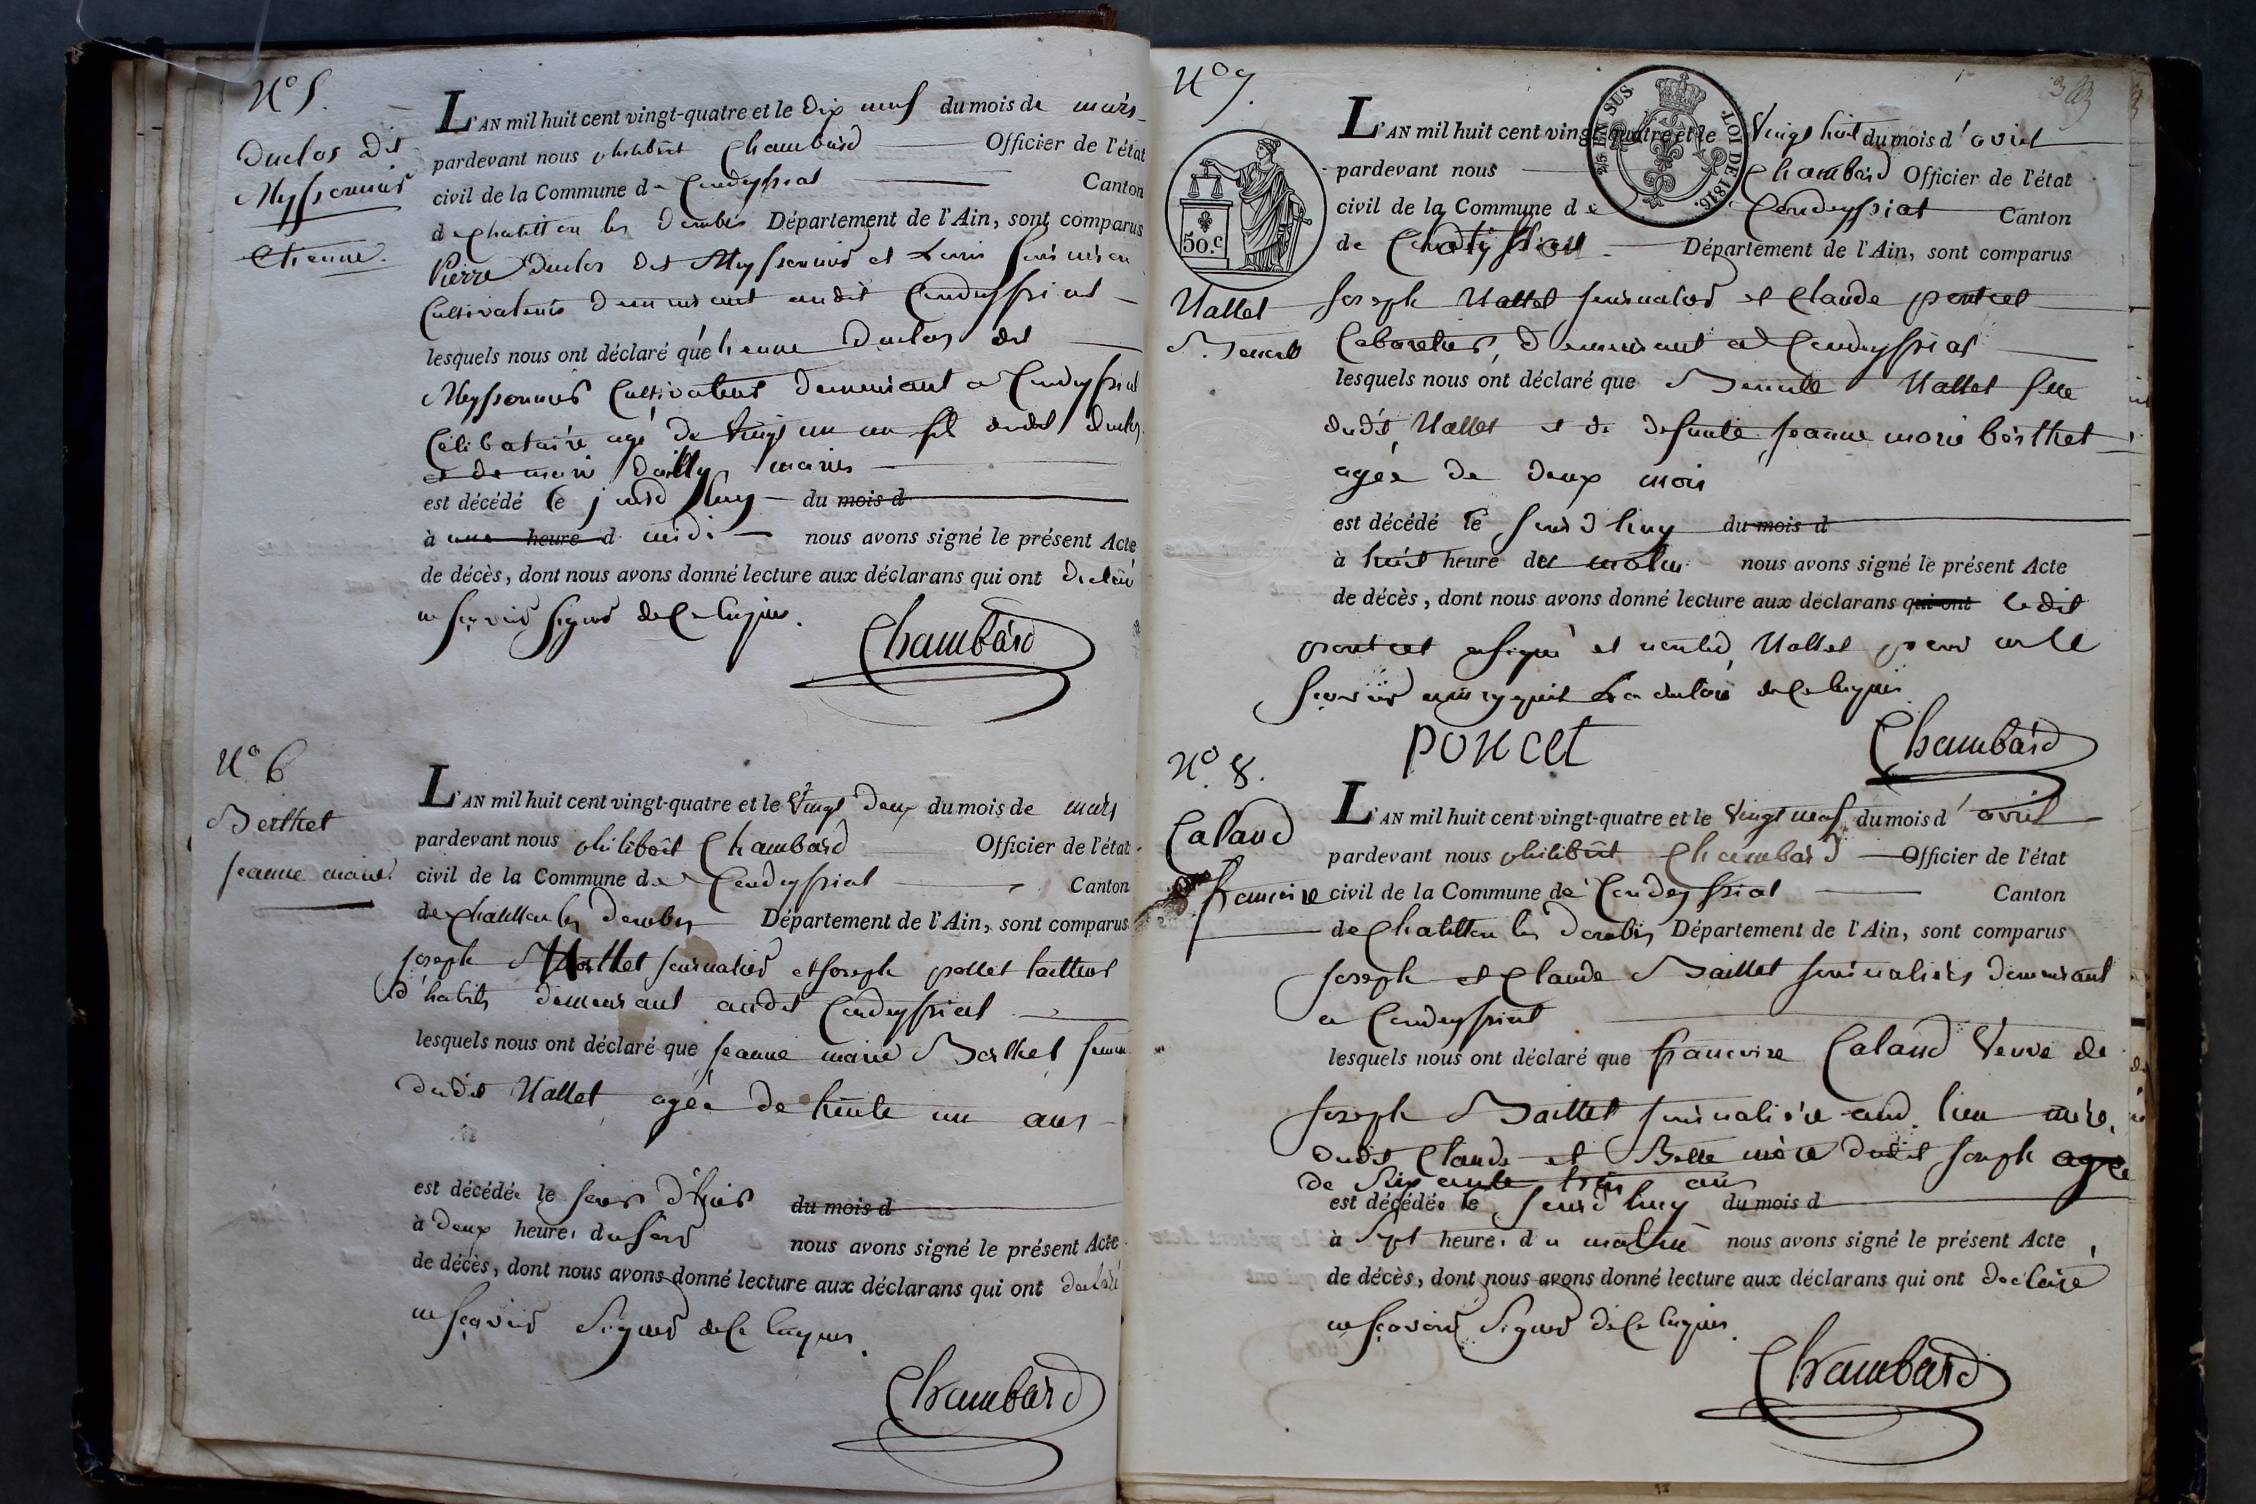 N° 5.
Duclos dit
Meyssonnier
Etienne.
L'AN mil huit cent vingt-quatre et le dix neuf du mois de mars
pardevant nous philibert Chambard Officier de l'état
civil de la Commune de Condeyssiat Canton
de chatillon les dombes Département de l'Ain, sont comparus
Pierre Duclos dit Meyssonnier et Louis
Cultivateurs demeurant audit Condeyssiat
lesquels nous ont déclaré qu'etienne Duclos dit
Meyssonnier Cultivateur demeurant a Condeyssiat
Célibataire agé de vingt un an fils dudit duclos
et de marie mariés
est décédé le jourd'huy du mois d
à une heure d midi nous avons signé le présent Acte
de décès, dont nous avons donné lecture aux déclarans qui ont déclaré
ne sçavoir signer de ce enquis.
Chambard
N° 6
Berthet
jeanne marie
L'AN mil huit cent vingt-quatre et le vingt deux du mois de mars
pardevant nous philibert Chambard Officier de l'état
civil de la Commune de Condeyssiat Canton
de chatillon les dombes Département de l'Ain, sont comparus
joseph Vallet journalier et joseph pollet tailleur
d'habits demeurant audit Condeyssiat
lesquels nous ont déclaré que jeanne marie Berthet femme
dudit Vallet agée de trente un ans
est décédée le jour d'hier du mois d
à deux heures du soir nous avons signé le présent Acte
de décès, dont nous avons donné lecture aux déclarans qui ont déclaré
ne sçavoir signer de ce enquis.
Chambard
N° 7.
50.c
2/5 EN SUS
LOI DE 1816.
Vallet
Benoite
L'AN mil huit cent vingt-quatre et le vingt huit du mois d'avril
pardevant nous Chambard Officier de l'état
civil de la Commune de Condeyssiat Canton
de Chatillon Département de l'Ain, sont comparus
joseph Vallet journalier et Claude poncet
Cabaretier, demeurant a Condeyssiat
lesquels nous ont déclaré que Benoite Vallet fille
dudit Vallet et de defunte jeanne marie berthet
agée de deux mois
est décédé le jourd'huy du mois d
à huit heure du matin nous avons signé le présent Acte
de décès, dont nous avons donné lecture aux déclarans qui ont ledit
poncet a signé et non led. Vallet pour ne le
sçavoir de ce enquis
poncet
Chambard
N° 8.
Caland
francoise
L'AN mil huit cent vingt-quatre et le vingt neuf du mois d'avril
pardevant nous philibert Chambard Officier de l'état
civil de la Commune de Condeyssiat Canton
de Chatillon les dombes Département de l'Ain, sont comparus
joseph et Claude Baillet journaliers demeurant
a Condeyssiat
lesquels nous ont déclaré que francoise Caland veuve de
joseph Baillet journalière aud. lieu mère
dudit Claude et Belle mère dudit joseph agée
de soixante trois ans
est décédée le jourd'huy du mois d
à sept heures du matin nous avons signé le présent Acte
de décès, dont nous avons donné lecture aux déclarans qui ont declaré
ne sçavoir signer de ce enquis.
Chambard